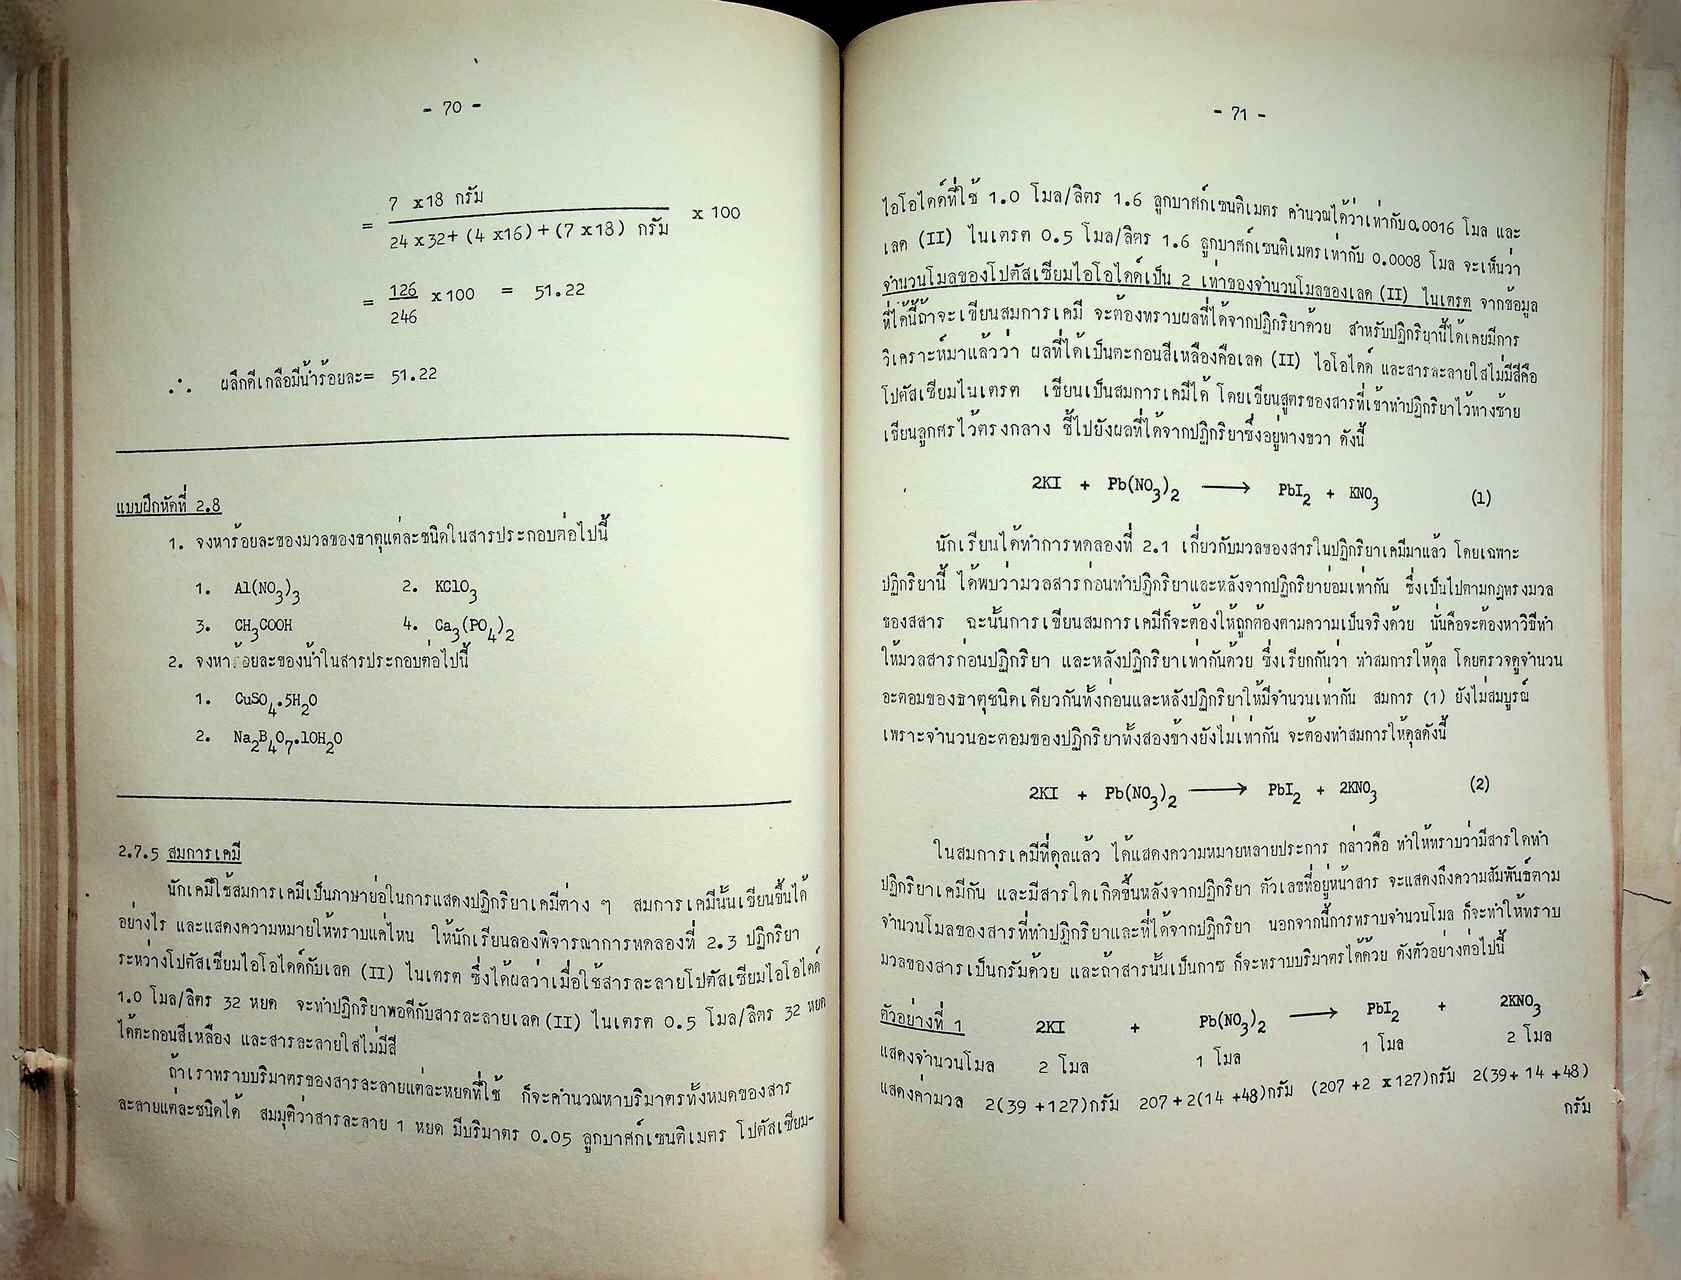 - 70 -
= 7 x18 กรัม
24 x 32+ (4 x16) + (7 x18) กรัม x 100
= 126 x 100 = 51.22
246
∴ ผลึกดีเกลือมีน้ำร้อยละ= 51.22
แบบฝึกหัดที่ 2.8
1. จงหาร้อยละของมวลของธาตุแต่ละชนิดในสารประกอบต่อไปนี้
1. Al(NO3)3 2. KClO3
3. CH3COOH 4. Ca3(PO4)2
2. จงหาร้อยละของน้ำในสารประกอบต่อไปนี้
1. CuSO4.5H2O
2. Na2B4O7.10H2O
2.7.5 สมการเคมี
นักเคมีใช้สมการเคมีเป็นภาษาย่อในการแสดงปฏิกริยาเคมีต่าง ๆ สมการเคมีนั้นเขียนขึ้นได้
อย่างไร และแสดงความหมายให้ทราบแค่ไหน ให้นักเรียนลองพิจารณาการทดลองที่ 2.3 ปฏิกริยา
ระหว่างโปตัสเซียมไอโอไดด์กับเลด (II) ไนเตรต ซึ่งได้ผลว่าเมื่อใช้สารละลายโปตัสเซียมไอโอไดด์
1.0 โมล/ลิตร 32 หยด จะทำปฏิกริยาพอดีกับสารละลายเลด(II) ไนเตรต 0.5 โมล/ลิตร 32 หยด
ได้ตะกอนสีเหลือง และสารละลายใสไม่มีสี
ถ้าเราทราบบริมาตรของสารละลายแต่ละหยดที่ใช้ ก็จะคำนวณหาบริมาตรทั้งหมดของสาร
ละลายแต่ละชนิดได้ สมมุติว่าสารละลาย 1 หยด มีบริมาตร 0.05 ลูกบาศก์เซนติเมตร โปตัสเซียม-
- 71 -
ไอโอไดด์ที่ใช้ 1.0 โมล/ลิตร 1.6 ลูกบาศก์เซนติเมตร คำนวณได้ว่าเท่ากับ0.0016 โมล และ
เลด (II) ไนเตรต 0.5 โมล/ลิตร 1.6 ลูกบาศก์เซนติเมตรเท่ากับ 0.0008 โมล จะเห็นว่า
จำนวนโมลของโปตัสเซียมไอโอไดด์เป็น 2 เท่าของจำนวนโมลของเลด (II) ไนเตรต จากข้อมูล
ที่ได้นี้ถ้าจะเขียนสมการเคมี จะต้องทราบผลที่ได้จากปฏิกริยาด้วย สำหรับปฏิกริยานี้ได้เคยมีการ
วิเคราะห์มาแล้วว่า ผลที่ได้เป็นตะกอนสีเหลืองคือเลด (II) ไอโอไดด์ และสารละลายใสไม่มีสีคือ
โปตัสเซียมไนเตรต เขียนเป็นสมการเคมีได้ โดยเขียนสูตรของสารที่เข้าทำปฏิกริยาไว้ทางซ้าย
เขียนลูกศรไว้ตรงกลาง ชี้ไปยังผลที่ได้จากปฏิกริยาซึ่งอยู่ทางขวา ดังนี้
2KI + Pb(NO3)2 ⟶ PbI2 + KNO3 (1)
นักเรียนได้ทำการทดลองที่ 2.1 เกี่ยวกับมวลของสารในปฏิกริยาเคมีมาแล้ว โดยเฉพาะ
ปฏิกริยานี้ ได้พบว่ามวลสารก่อนทำปฏิกริยาและหลังจากปฏิกริยาย่อมเท่ากัน ซึ่งเป็นไปตามกฎทรงมวล
ของสสาร ฉะนั้นการเขียนสมการเคมีก็จะต้องให้ถูกต้องตามความเป็นจริงด้วย นั่นคือจะต้องหาวิธีทำ
ให้มวลสารก่อนปฏิกริยา และหลังปฏิกริยาเท่ากันด้วย ซึ่งเรียกกันว่า ทำสมการให้ดุล โดยตรวจดูจำนวน
อะตอมของธาตุชนิดเดียวกันทั้งก่อนและหลังปฏิกริยาให้มีจำนวนเท่ากัน สมการ (1) ยังไม่สมบูรณ์
เพราะจำนวนอะตอมของปฏิกริยาทั้งสองข้างยังไม่เท่ากัน จะต้องทำสมการให้ดุลดังนี้
2KI + Pb(NO3)2 ⟶ PbI2 + 2KNO3 (2)
ในสมการเคมีที่ดุลแล้ว ได้แสดงความหมายหลายประการ กล่าวคือ ทำให้ทราบว่ามีสารใดทำ
ปฏิกริยาเคมีกัน และมีสารใดเกิดขึ้นหลังจากปฏิกริยา ตัวเลขที่อยู่หน้าสาร จะแสดงถึงความสัมพันธ์ตาม
จำนวนโมลของสารที่ทำปฏิกริยาและที่ได้จากปฏิกริยา นอกจากนี้การทราบจำนวนโมล ก็จะทำให้ทราบ
มวลของสารเป็นกรัมด้วย และถ้าสารนั้นเป็นกาซ ก็จะทราบบริมาตรได้ด้วย ดังตัวอย่างต่อไปนี้
ตัวอย่างที่ 1 2KI + Pb(NO3)2 ⟶ PbI2 + 2KNO3
แสดงจำนวนโมล 2 โมล 1 โมล 1 โมล 2 โมล
แสดงค่ามวล 2(39 +127)กรัม 207 + 2(14 +48)กรัม (207 +2 x127)กรัม 2(39+ 14 +48)
กรัม